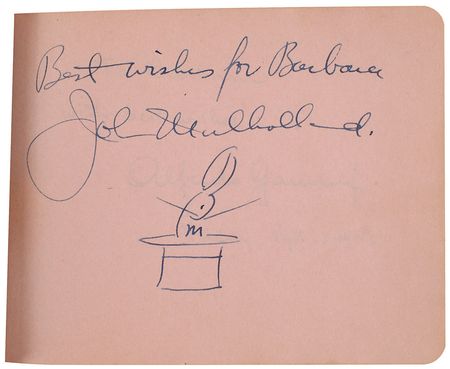 Best wishes for Barbara
John Mulholland.